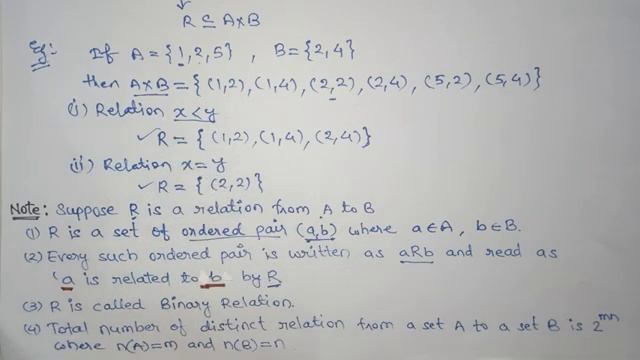 R ⊆ A×B
Eg: If A = {1,2,5} , B = {2,4}
then A×B = { (1,2), (1,4), (2,2), (2,4), (5,2), (5,4)}
(i) Relation x<y
✓R = { (1,2), (1,4), (2,4)}
(ii) Relation x=y
✓R = { (2,2)}
Note: Suppose R is a relation from A to B
(1) R is a set of ordered pair (a,b) where a∈A, b∈B.
(2) Every such ordered pair is written as aRb and read as
'a is related to b by R
(3) R is called Binary Relation.
(4) Total number of distinct relation from a set A to a set B is 2^mn
where n(A)=m and n(B)=n